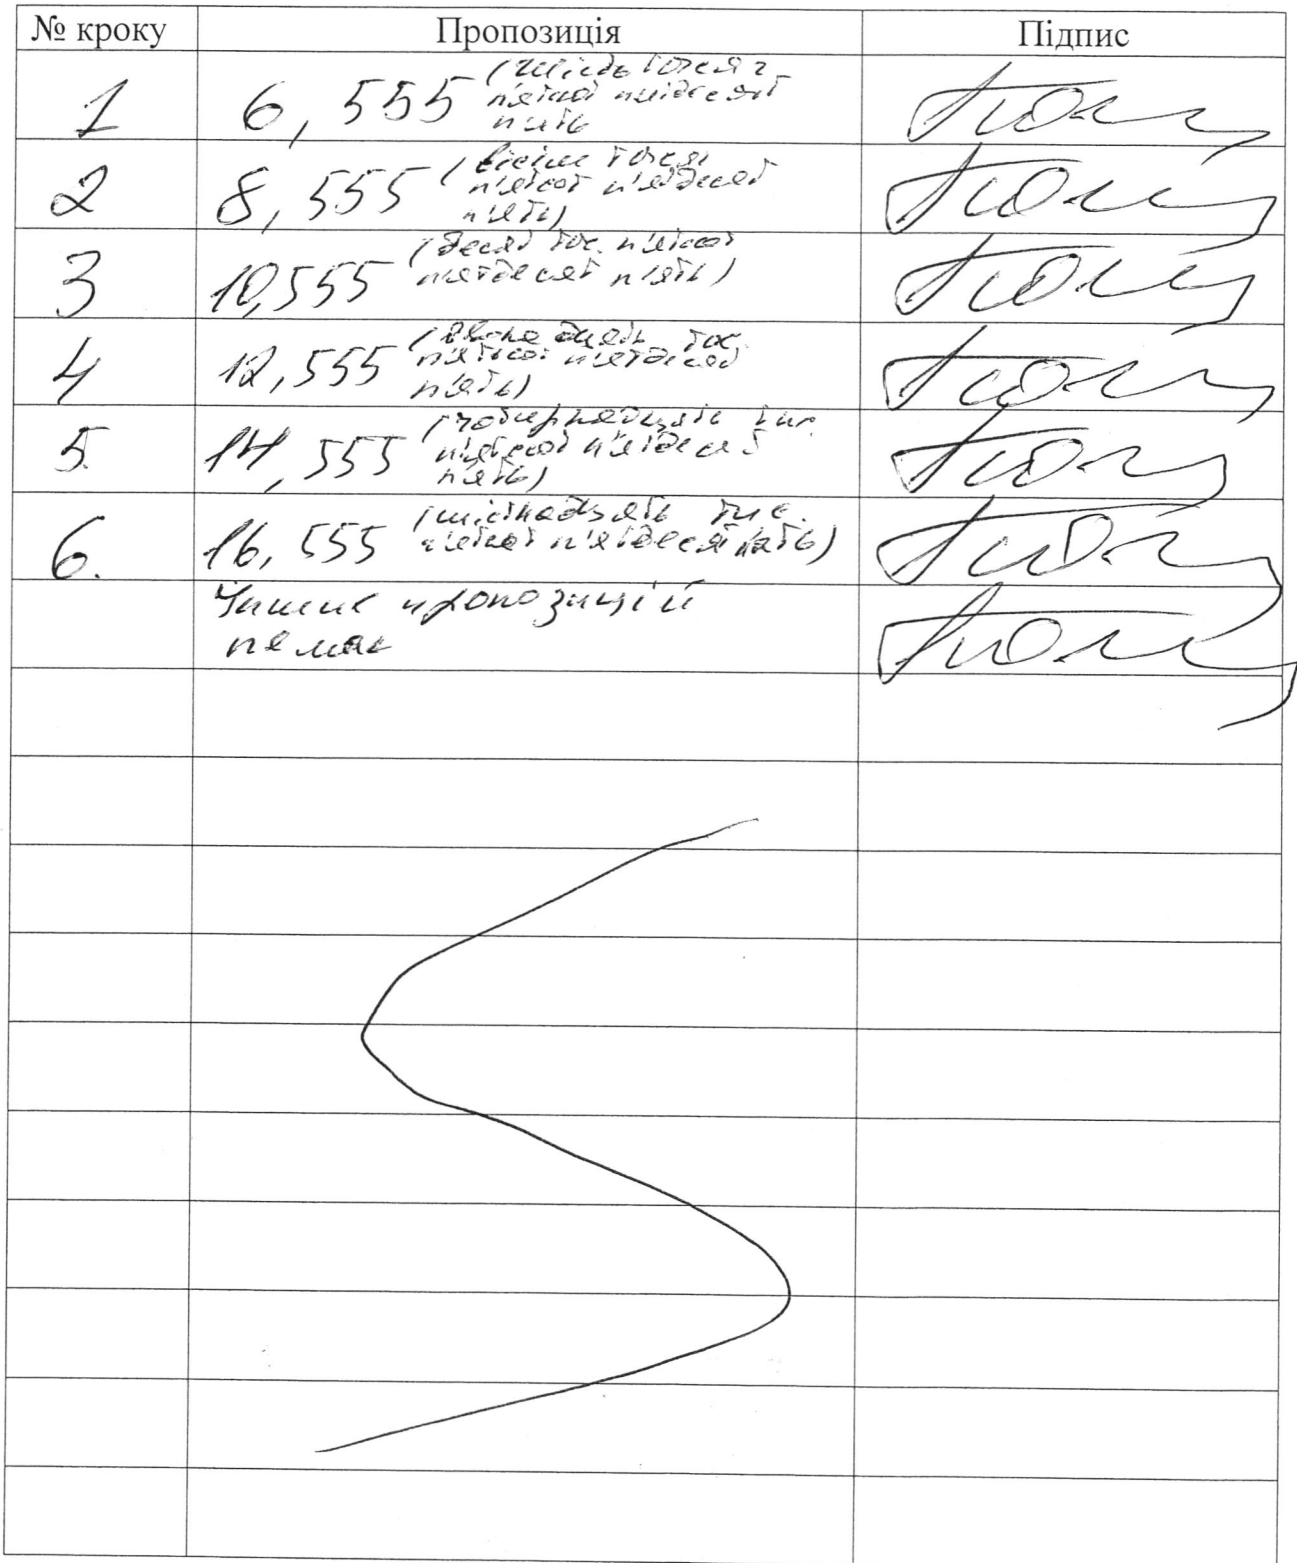 № кроку Пропозиція Підпис
1 6,555 (шість тисяч
п'ятсот п'ятдесят
п'ять
2 8,555 (вісім тисяч
п'ятсот п'ятдесят
п'ять)
3 10,555 (десят тис. п'ятсот
п'ятдесят п'ять)
4 12,555 (дванадцять тис.
п'ятсот п'ятдесят
п'ять)
5. 14,555 (чотирнадцять тис.
п'ятсот п'ятдесят
п'ять)
6. 16,555 (шістнадцять тис.
п'ятсот п'ятдесят п'ять)
Інших пропозицій
немає